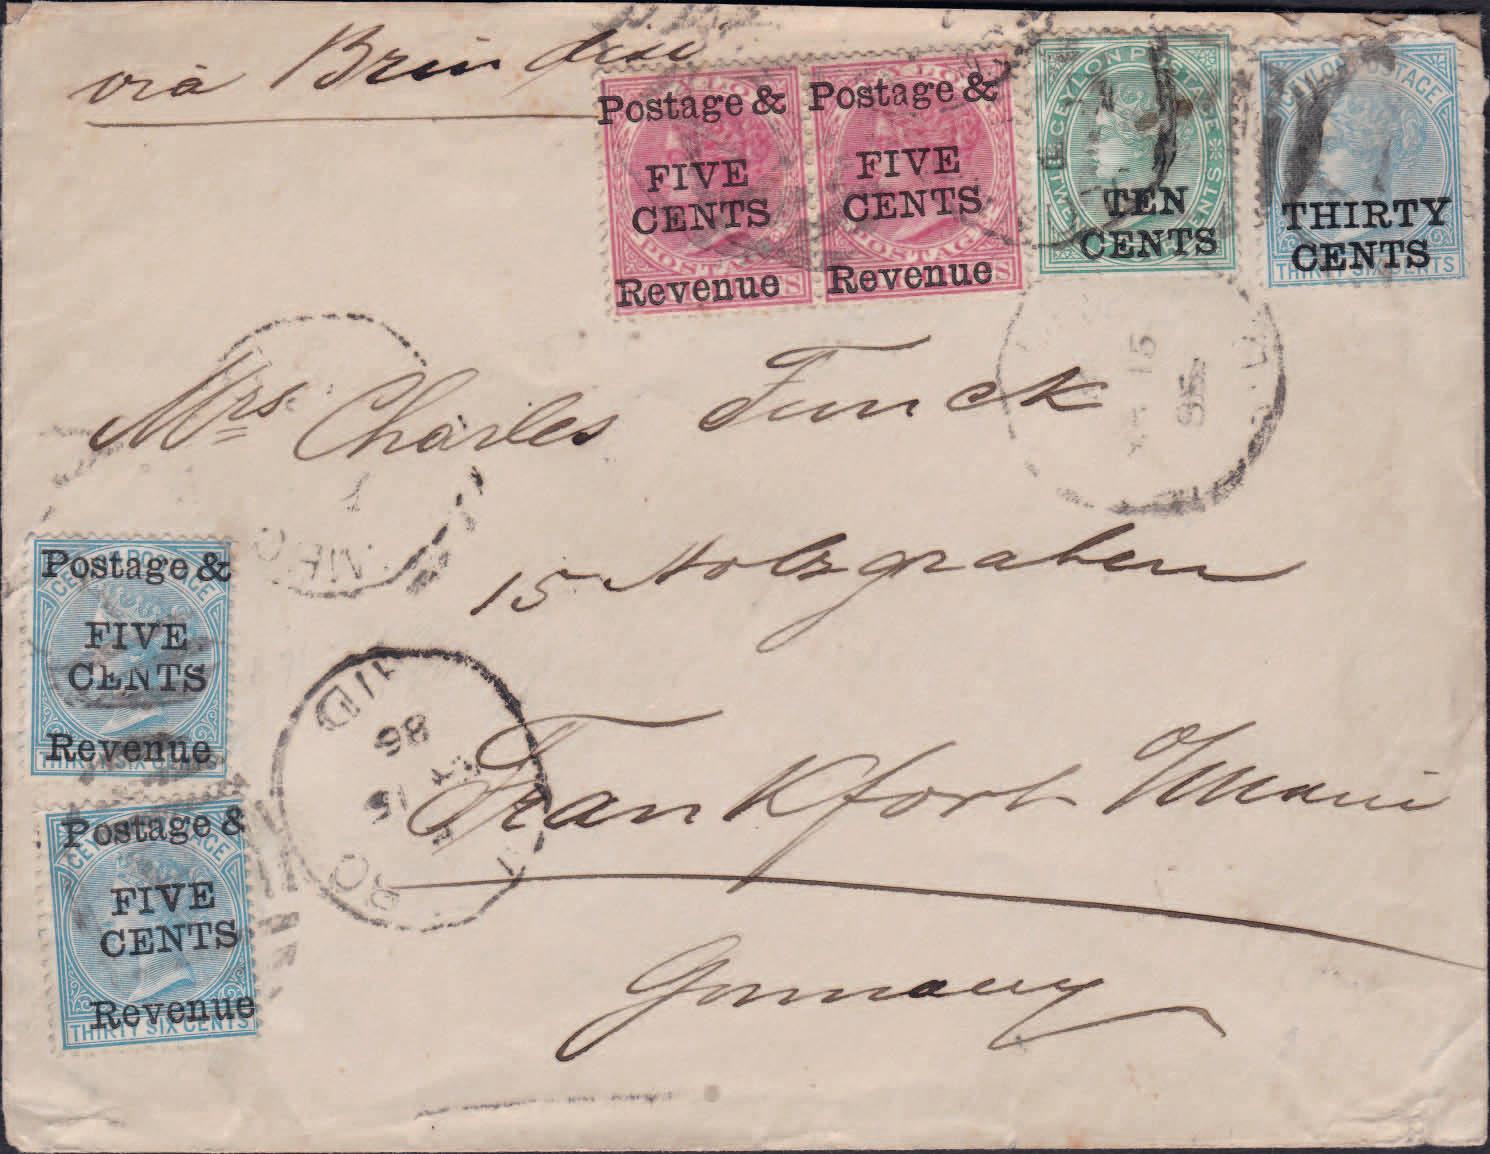 via Brindisi
Postage &
FIVE
CENTS
Revenue
Postage &
FIVE
CENTS
Revenue
CEYLON POSTAGE
TEN
CENTS
CEYLON POSTAGE
THIRTY
CENTS
Mrs Charles Funck
15
15 Holzgraben
Frankfort a/Main
Germany
Postage &
FIVE
CENTS
Revenue
THIRTY SIX CENTS
Postage &
FIVE
CENTS
Revenue
THIRTY SIX CENTS
86